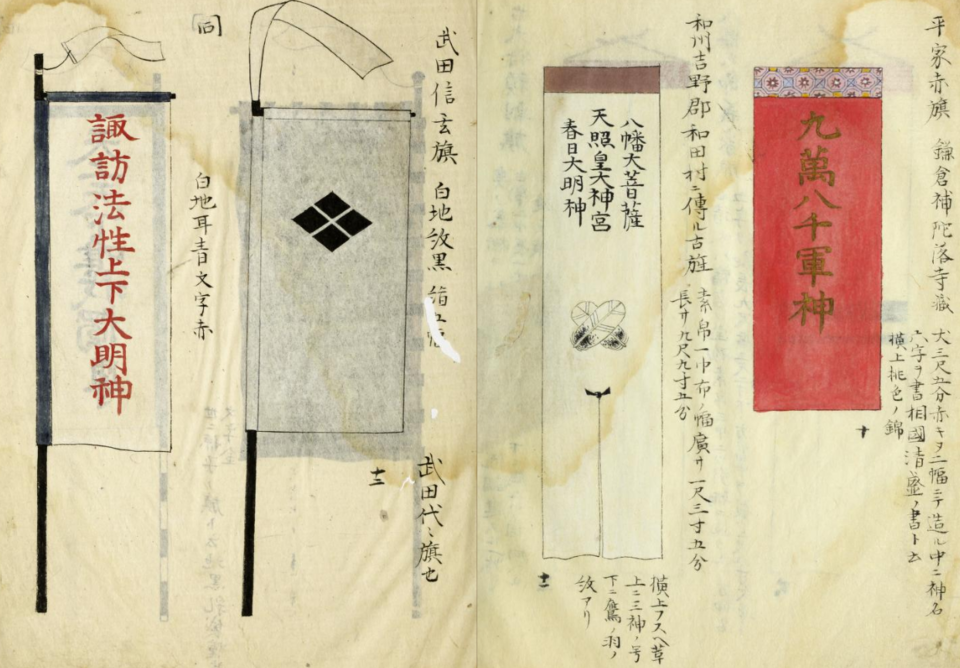 平家赤旗 鎌倉補陀落寺蔵
丈三尺五分赤キヌ二幅ニテ造ル中ニ神名
六字ヲ書相國清盛ノ書ト云
横上桃色ノ錦
九萬八千軍神
十
和州吉野郡和田村ニ傳ル古旌
素帛一巾布ノ幅廣サ一尺三寸五分
長サ九尺九寸五分
八幡大菩薩
天照皇大神宮
春日大明神
横上フスヘ革
上ニ三神ノ号
下ニ鷹ノ羽ノ
紋アリ
十一
武田信玄旗 白地紋黒
武田代々旗也
十二
白地耳青文字赤
諏訪法性上下大明神